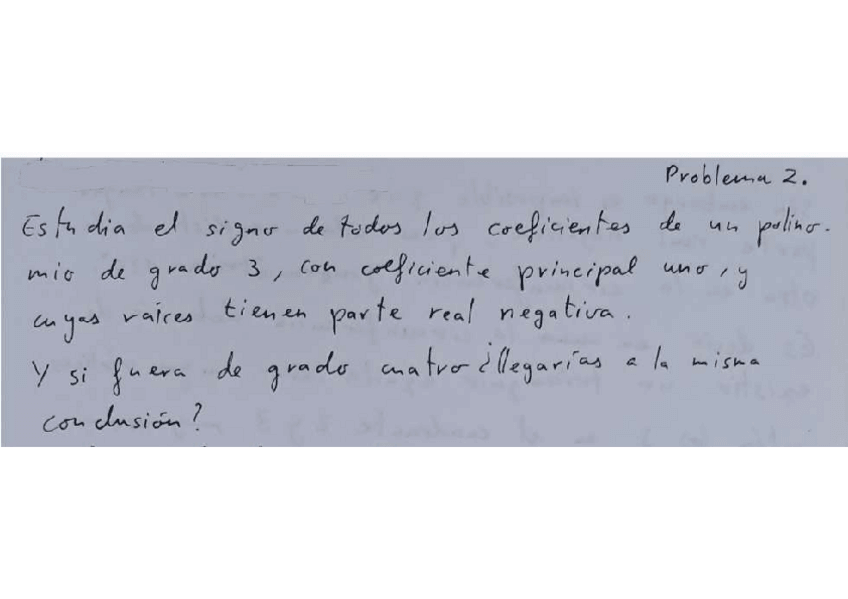 Problema 2.
Estudia el signo de todos los coeficientes de un polino-
mio de grado 3, con coeficiente principal uno, y
cuyas raíces tienen parte real negativa.
Y si fuera de grado cuatro ¿llegarías a la misma
conclusión?